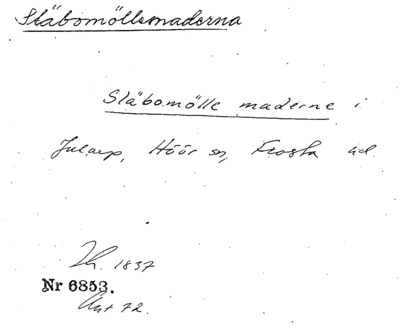 Släbomöllemaderna
Släbomölle maderne i
Jularp, Höör sn, Frosta hd
Lh. 1837
Nr 6853.
Akt 72.